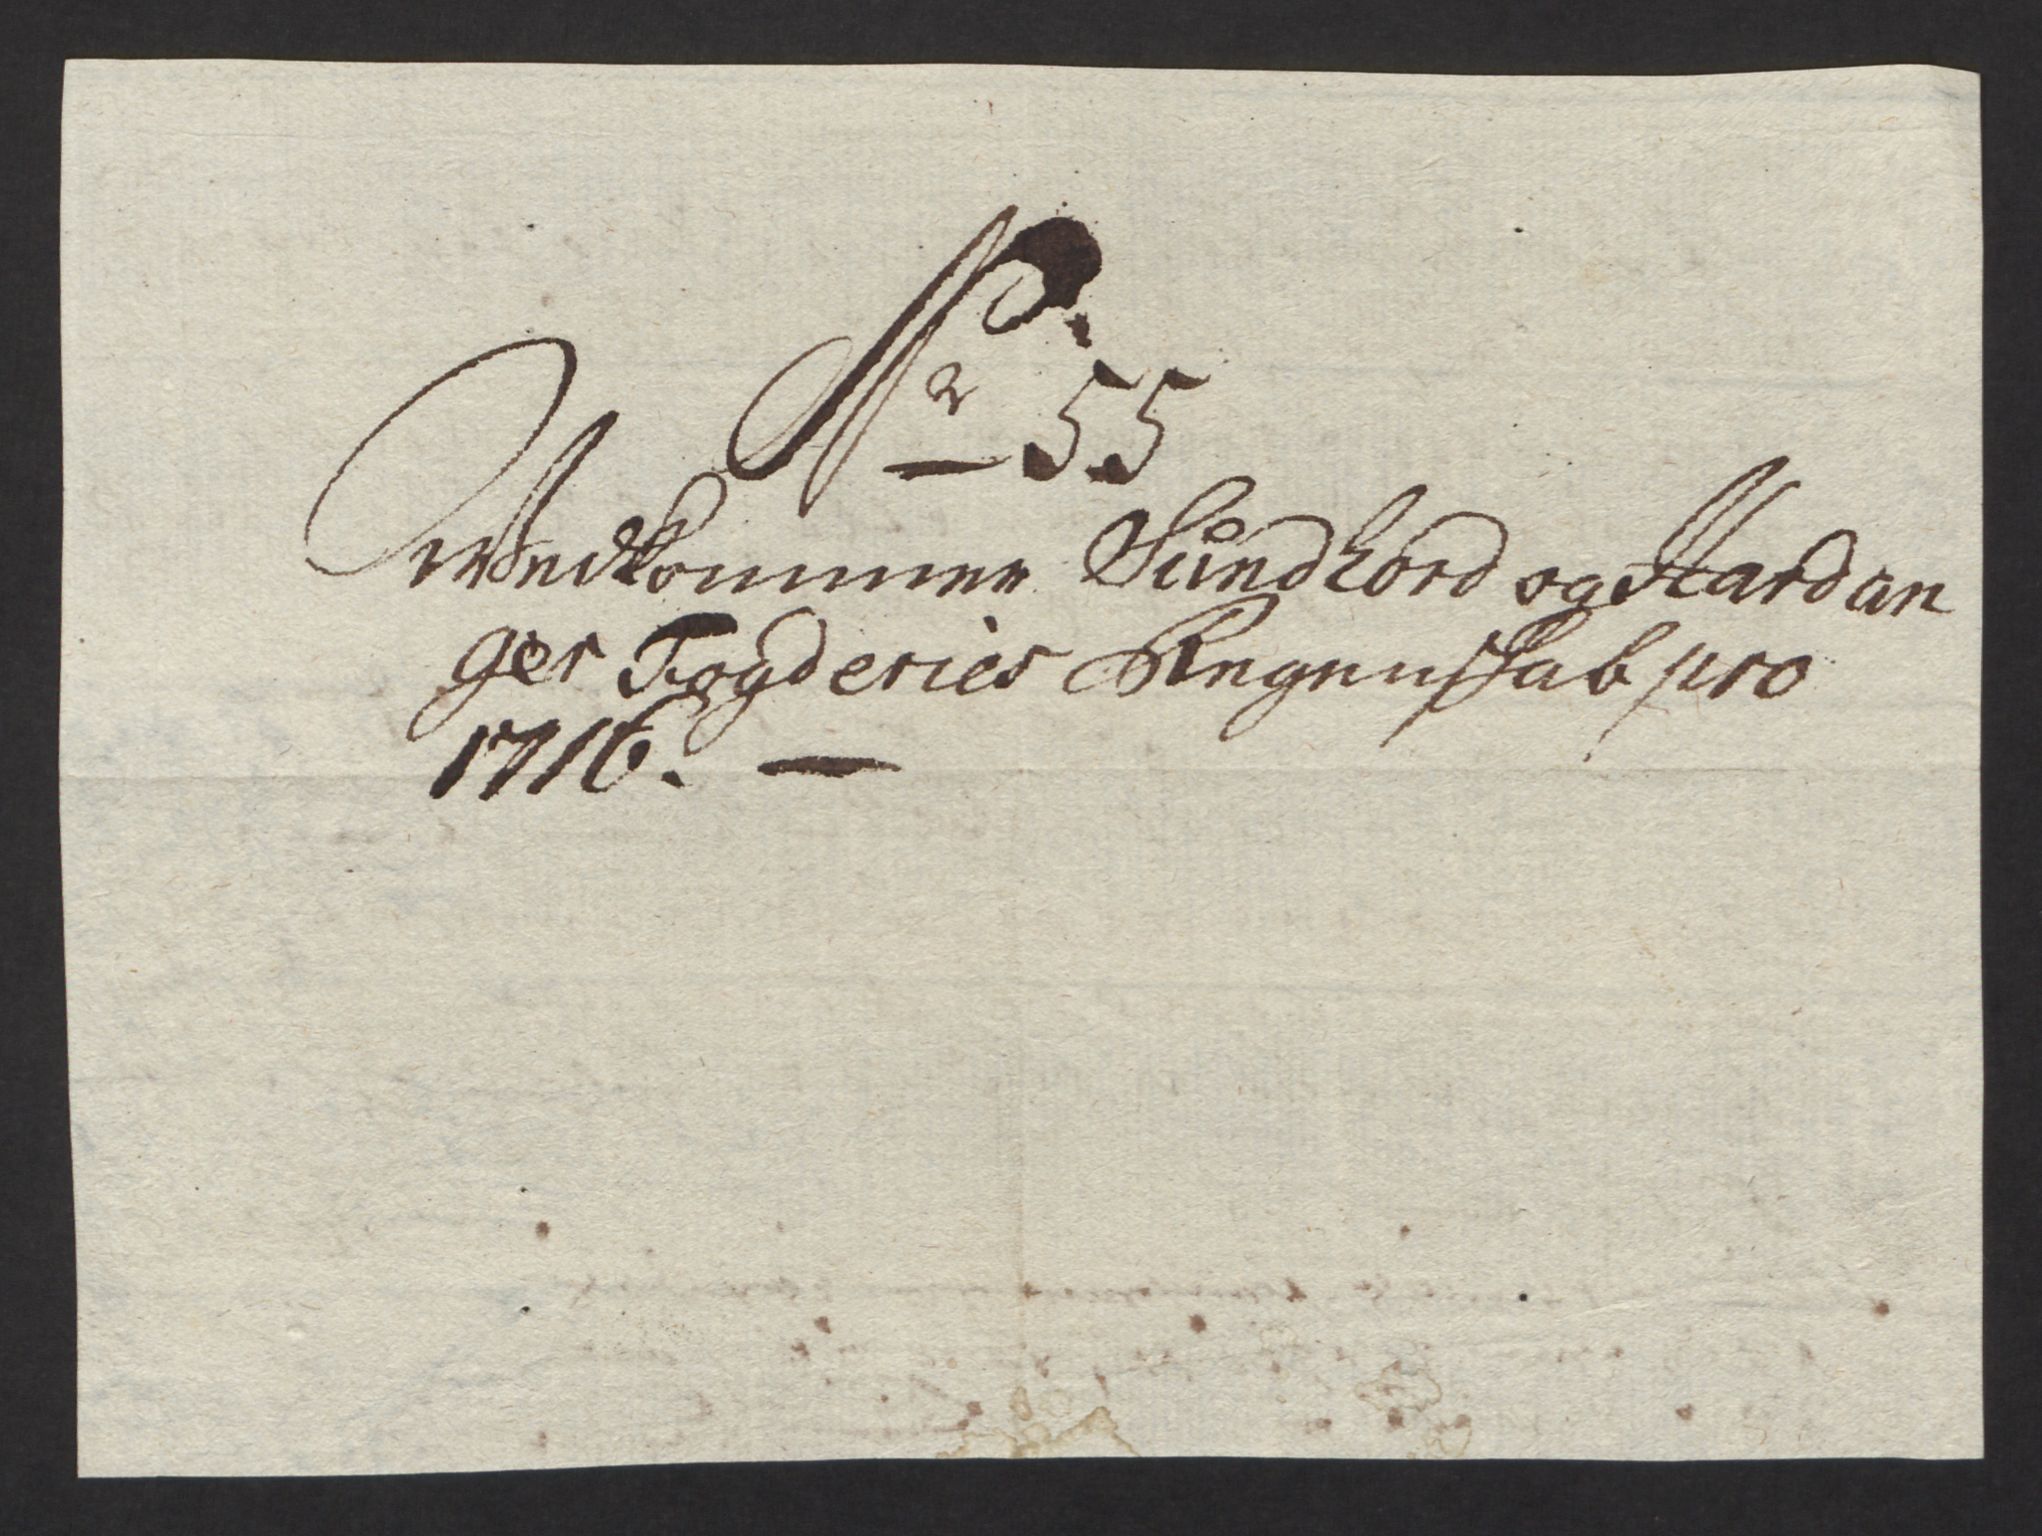 Nr 55
Vedkommer Sundhord og Hardan
ger Fogderies Regenskab pro
1716. —